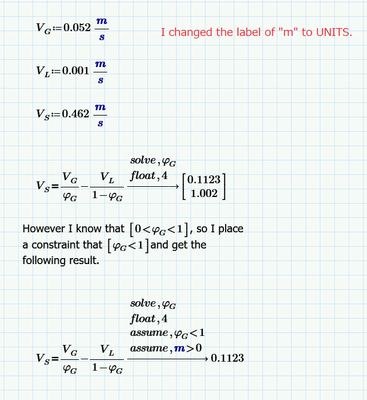 V_G:=0.052 m/s
I changed the label of "m" to UNITS.
V_L:=0.001 m/s
V_S:=0.462 m/s
solve,φ_G
float,4
V_S=V_G/φ_G−V_L/(1−φ_G) → [0.1123 1.002]
However I know that [0<φ_G<1], so I place
a constraint that [φ_G<1]and get the
following result.
solve,φ_G
float,4
assume,φ_G<1
assume,m>0
V_S=V_G/φ_G−V_L/(1−φ_G) → 0.1123